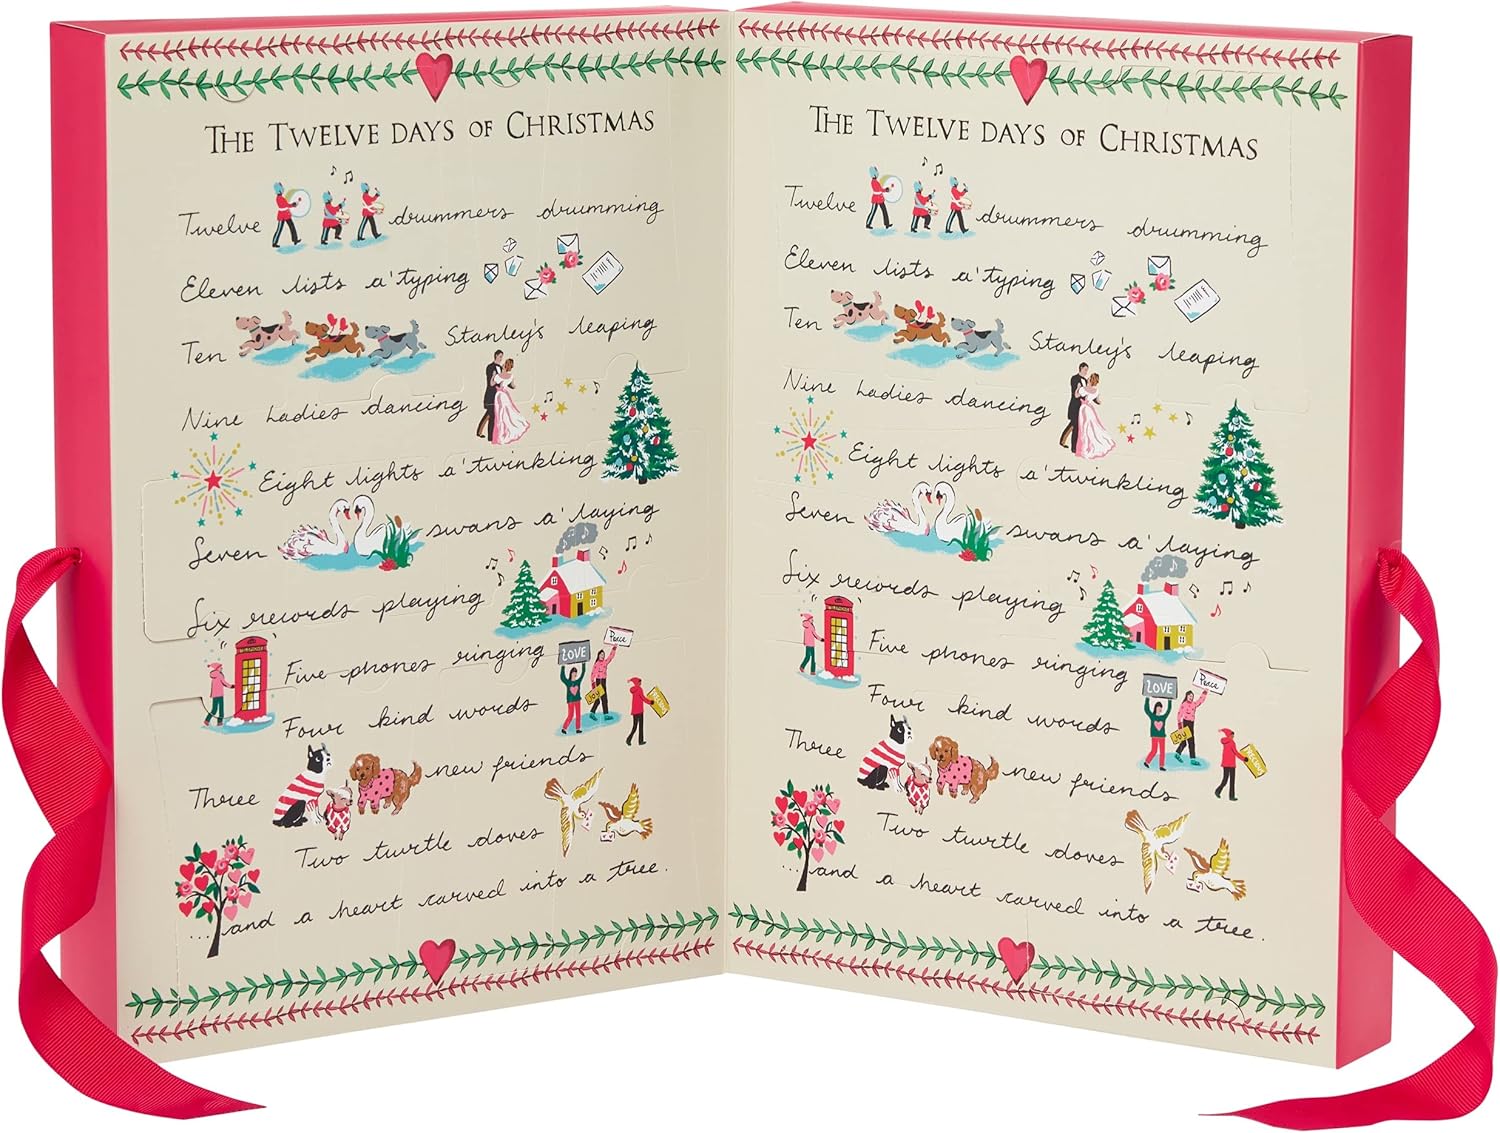 THE TWELVE DAYS OF CHRISTMAS
Twelve drummers drumming
Eleven lists a'typing
Ten Stanley's leaping
Nine ladies dancing
Eight lights a'twinkling
Seven swans a'laying
Six records playing
Five phones ringing
TELEPHONE
LOVE
Peace
JOY
Four kind words
Three new friends
Two turtle doves
...and a heart carved into a tree.
THE TWELVE DAYS OF CHRISTMAS
Twelve drummers drumming
Eleven lists a'typing
Ten Stanley's leaping
Nine ladies dancing
Eight lights a'twinkling
Seven swans a'laying
Six records playing
Five phones ringing
TELEPHONE
LOVE
Peace
JOY
Four kind words
Three new friends
Two turtle doves
...and a heart carved into a tree.